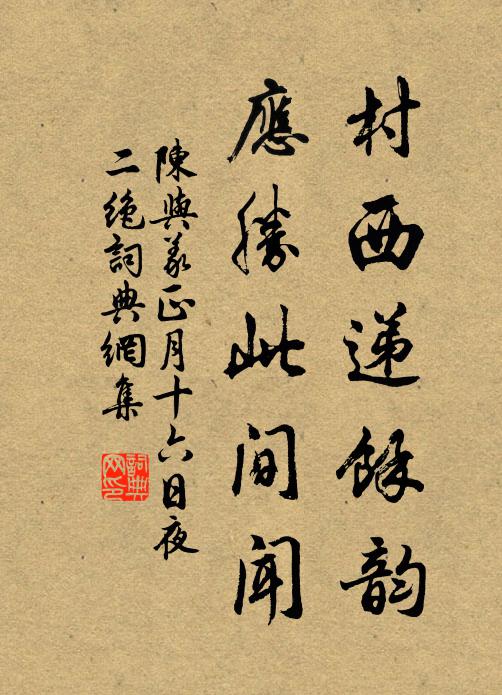 村西递餘韵
應勝此间闻
陳與義正月十六日夜
二绝詞典網集
詞典网印